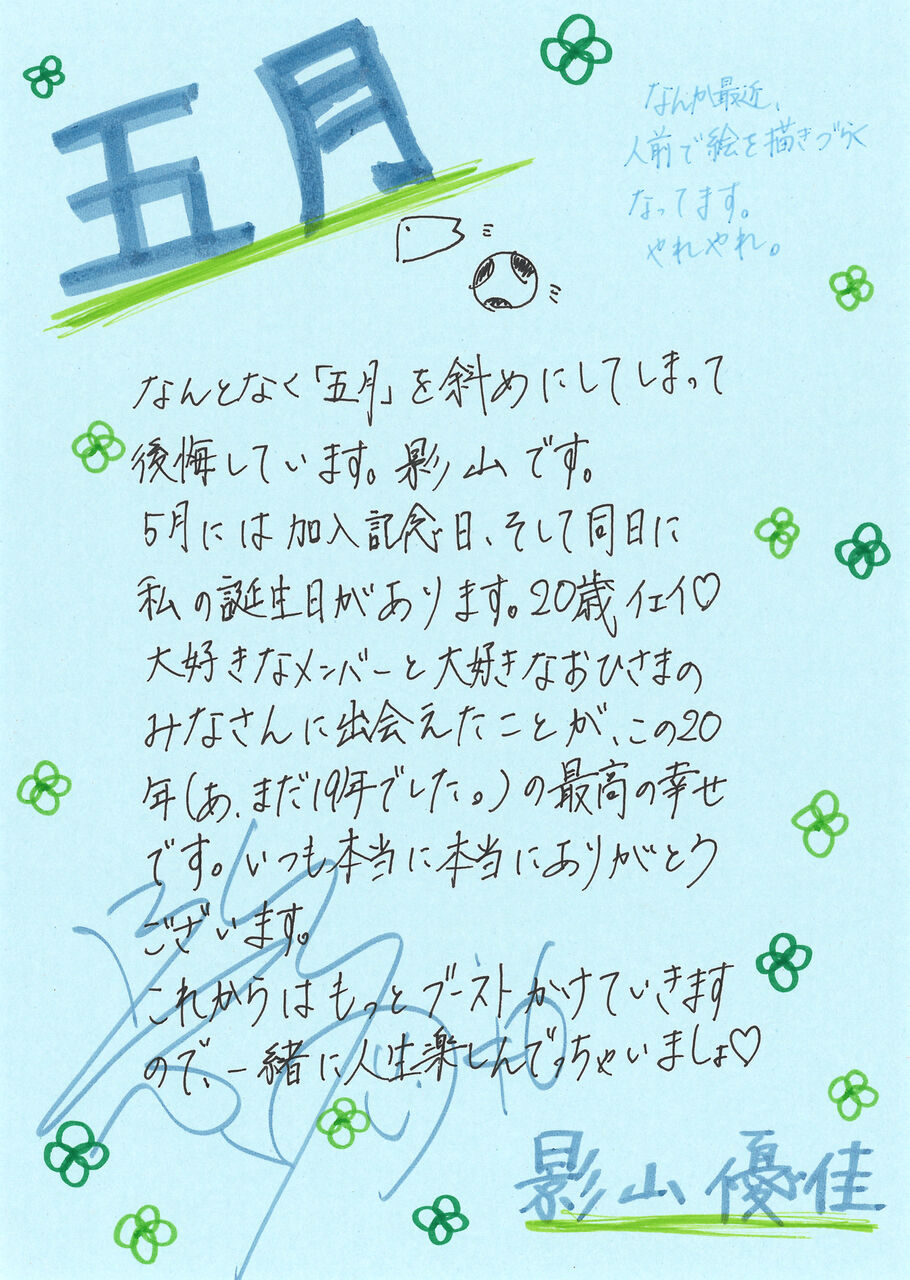 五月
なんか最近、
人前で絵を描きづらく
なってます。
やれやれ。
なんとなく「五月」を斜めにしてしまって
後悔しています。影山です。
5月には加入記念日、そして同日に
私の誕生日があります。20歳イェイ♡
大好きなメンバーと大好きなおひさまの
みなさんに出会えたことが、この20
年(あ、まだ19年でした。)の最高の幸せ
です。いつも本当に本当にありがとう
ございます。
これからはもっとブーストかけていきます
ので、一緒に人生楽しんでっちゃいましょ♡
影山優佳